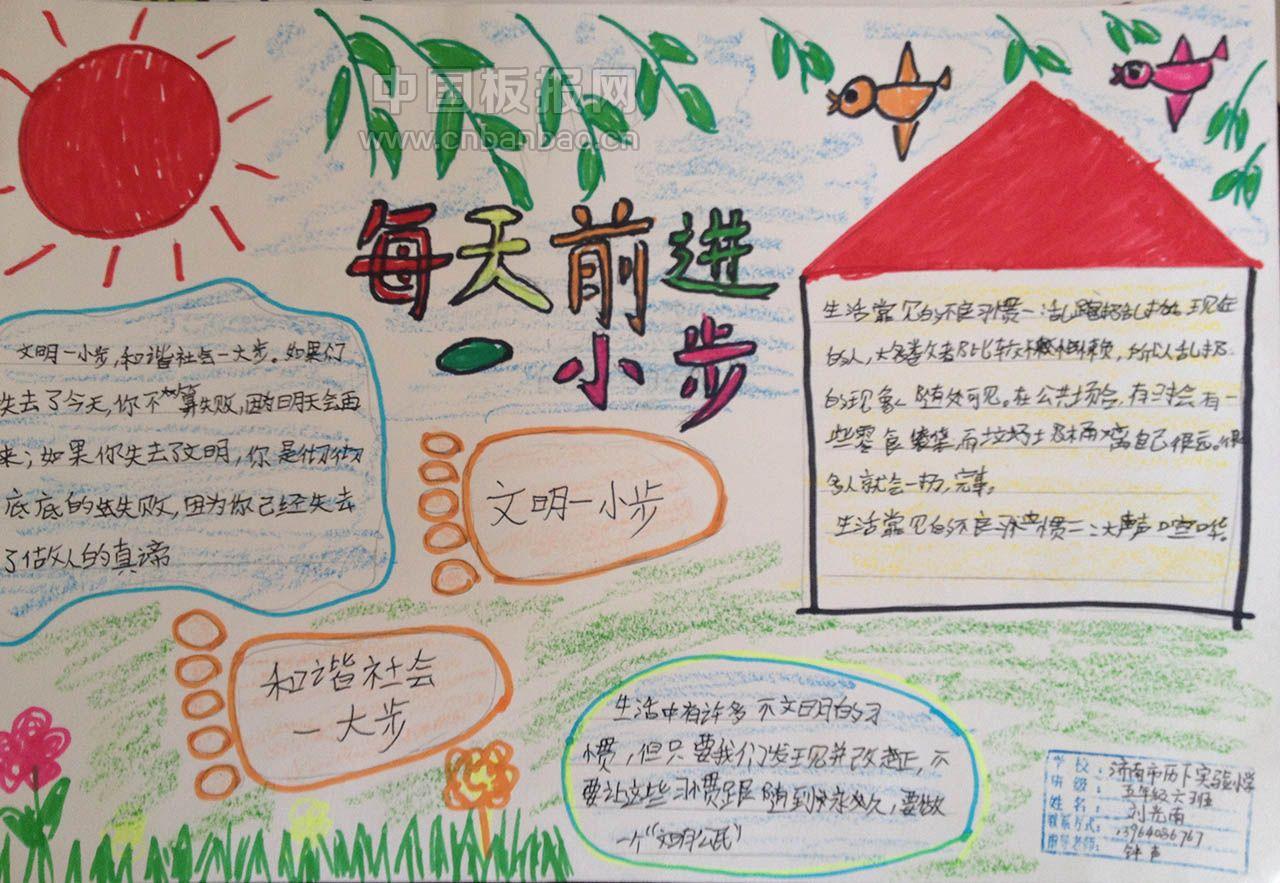 中国板报网
www.cnbanbao.cn
每天前进
一小步
文明一小步，和谐社会一大步。如果们
失去了今天，你不算失败，因为明天会再
来；如果你失去了文明，你是彻彻
底底的失败，因为你已经失去
了做人的真谛
文明一小步
和谐社会
一大步
生活常见的不良习惯一：乱踢乱扔。现在
的人，大多数父者都比较懒，所以乱扔
的现象，随处可见。在公共场合，有时会有一
些零食袋，而垃圾土圾桶离自己很远。很
多人就会一扔，完事。
生活常见的不良习惯二：大声喧哗。
生活中有许多不文明的习
惯，但只要我们发现并改正，不
要让这些习惯跟随到永久，要做
一个“文明公民”
学校：济南市历下实验小学
班级：五年级六班
姓名：刘光雨
联系方式：13964086767
指导老师：钟声